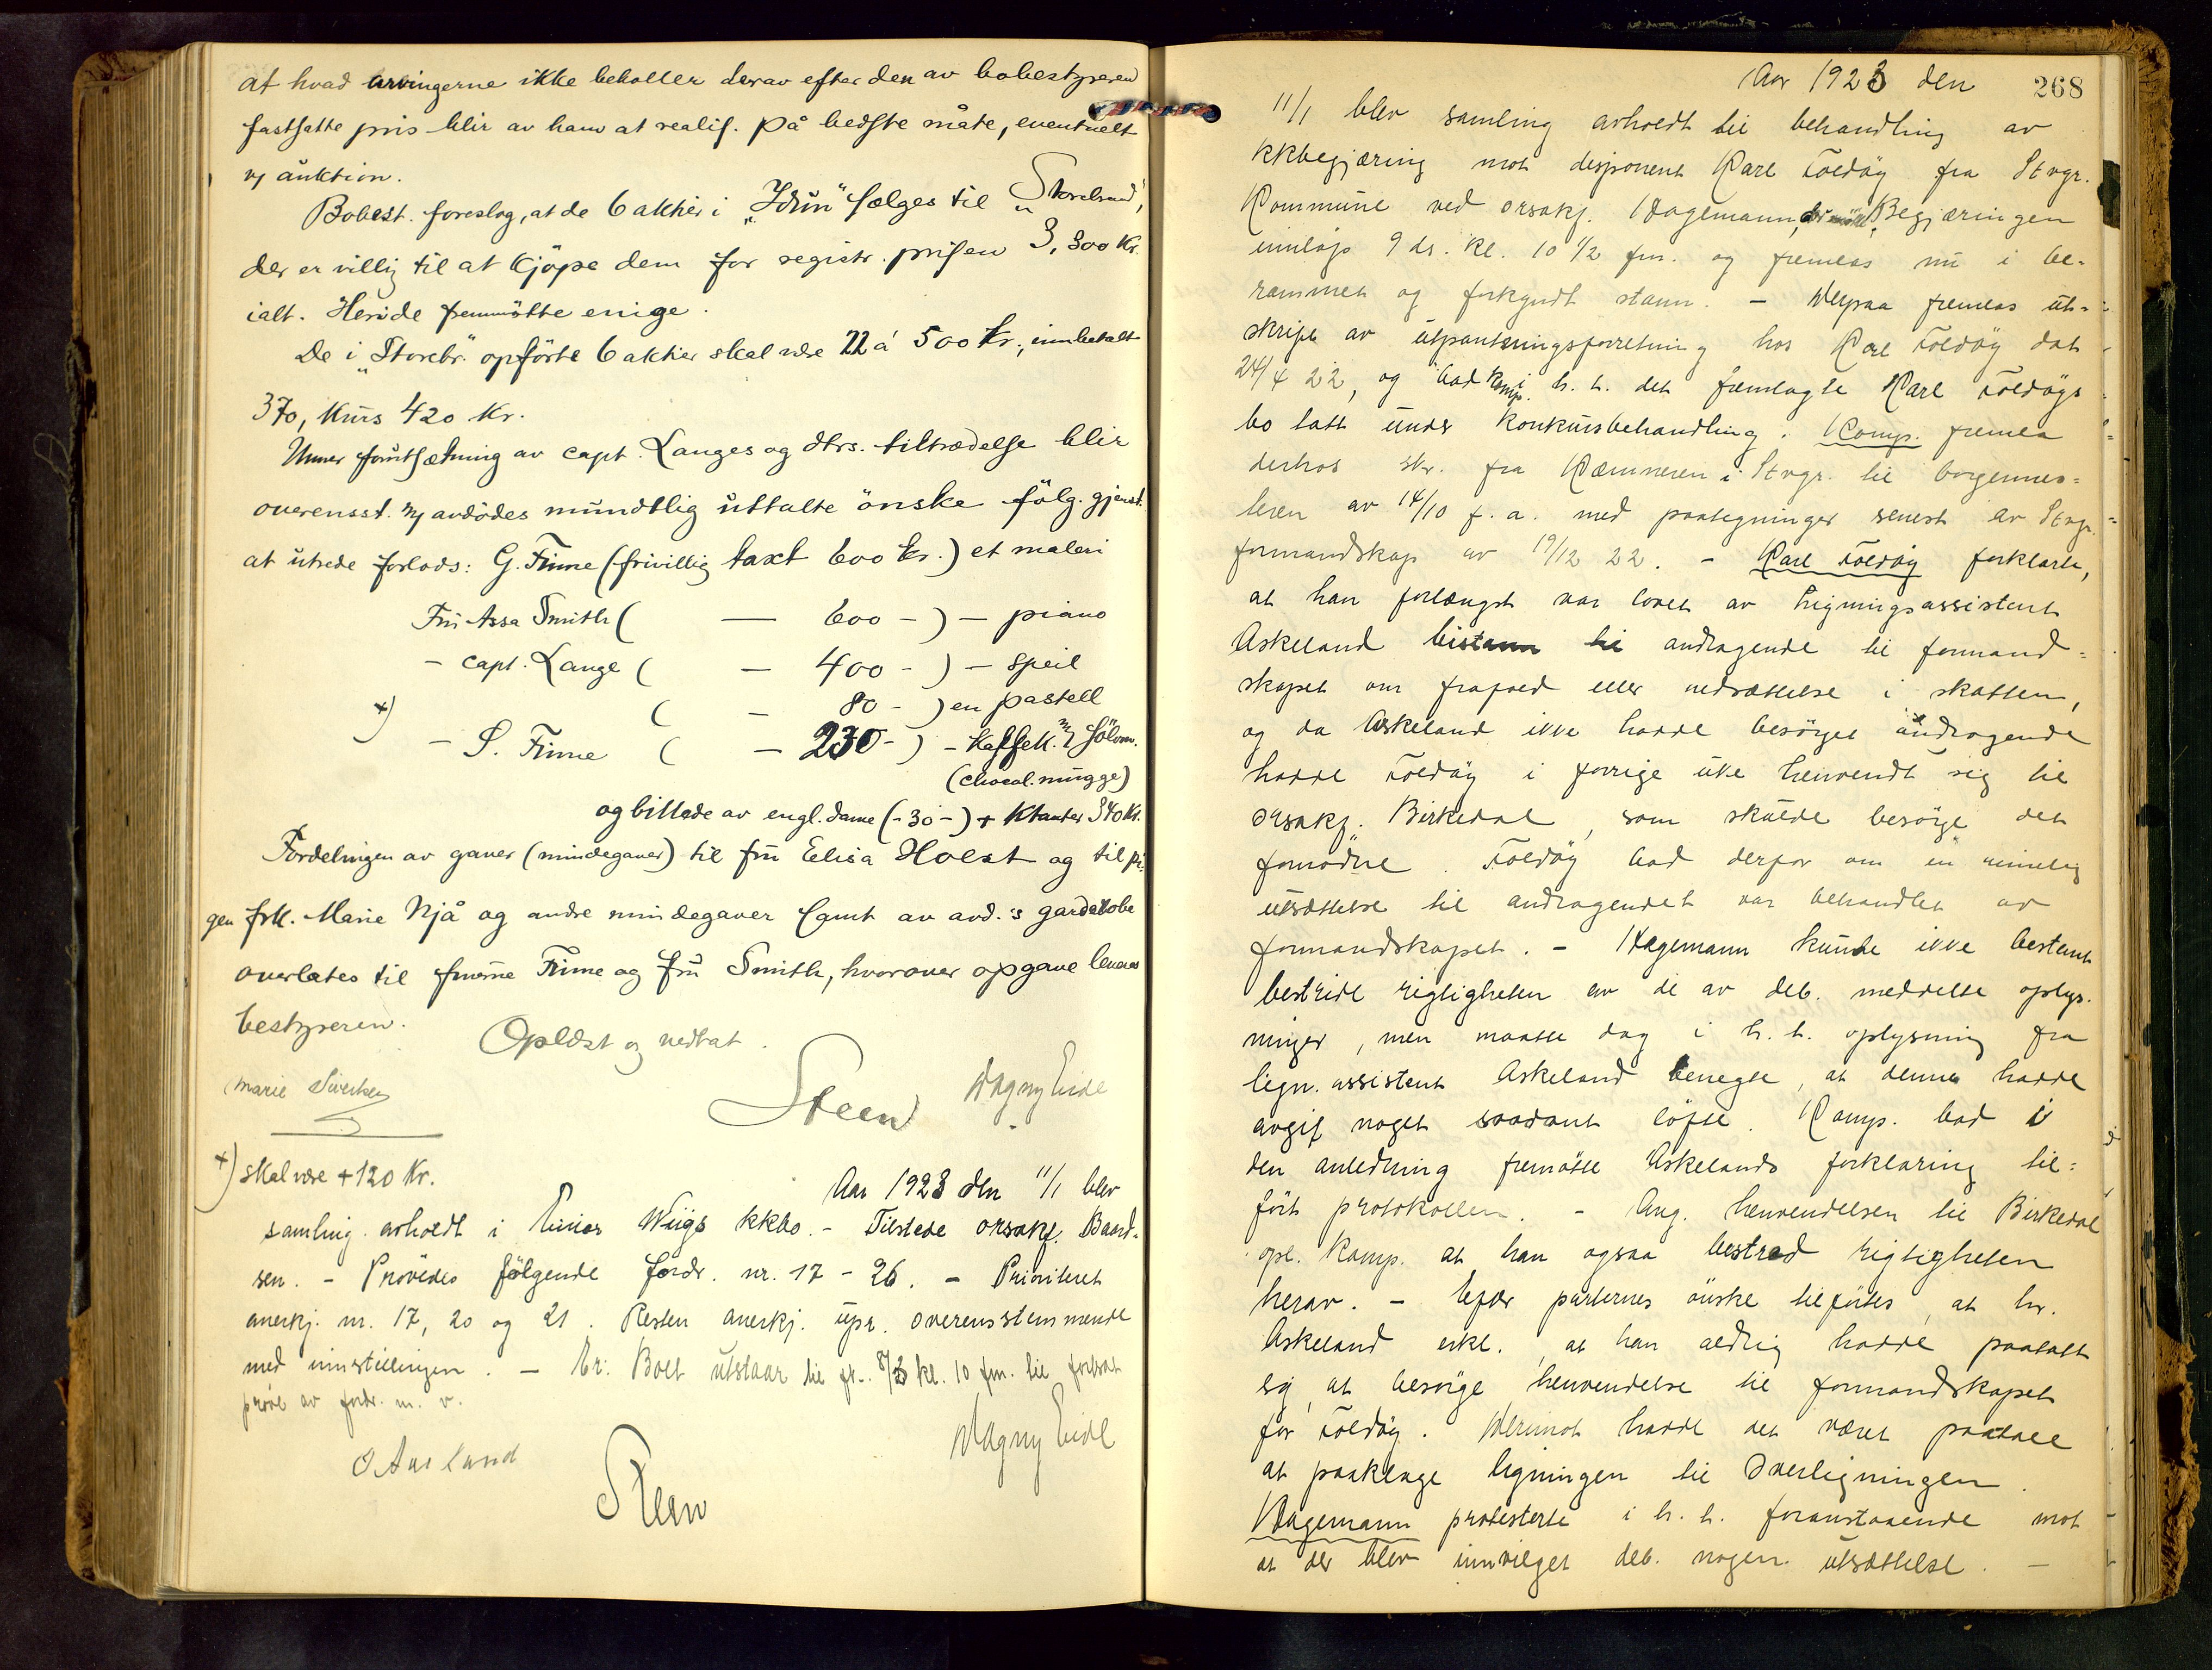 at hvad arvingerne ikke beholler derav efter den av bobestyreren
fastsatte pris blir av ham at realis. på bedste måte, eventuelt
v/ auktion.
Bobest. foreslog, at de 6 aktier i "Idun" sælges til "Storebrand",
der er villig til at kjöpe dem for registr. prisen 3,300 kr.
ialt. Heri de fremmötte enige.
De i "Storebr." opförte 6 aktier skal være 22 á 500 kr., innbetalt
370, kurs 420 kr.
Unner forutsætning av capt. Langes og dtrs. tiltrædelse blir
overensst. m/ avdödes mundtlig uttalte önske fölg. gjenst.
at utrede forlods: G. Finne (frivillig taxt 600 kr.) et maleri
Fru Assa Smith ( — 600 - ) — piano
- capt. Lange ( — 400 - ) — speil
+) ( — 80 - ) en pastell
- S. Finne ( — 230 - ) - kaffek. m/ sölvm.
(chocol. mugge)
og billede av engl. dame (- 30 -) + ktanter 340 kr.
Fordelingen av gaver (mindegaver) til fru Elisa Holst og til pi-
gen frk. Marie Njå og andre mindegaver samt av avd.'s garderobe
overlates til fruerne Finne og fru Smith, hvorover opgave leveres
bestyreren.
Oplæst og vedtat.
Marie Sivertsen Steen Magny Eide
+) skal være + 120 Kr.
Aar 1923 den 11/1 blev
samling avholdt i Einar Wiigs kkbo. - Tilstede orsakf. Baard-
sen. - Prövedes fölgende fordr. nr. 17 - 26. - Prioritet
anerkj. nr. 17, 20 og 21. Resten anerkj. upr. overensstemmende
med innstillingen. - Er: Boet utstaar til fr. 8/3 kl. 10 fm. til fortsat
pröve av fordr. m. v.
O Aasland Steen Magny Eide
Aar 1923 den 268
11/1 blev samling avholdt til behandling av
kkbegjæring mot disponent Karl Foldöy fra Stvgr.
Kommune ved orsakf. Hagemann, der mötte. Begjæringen
innlöp 9 ds. kl. 10 1/2 fm. og fremlas nu i be-
rammet og forkyndt stann. - Derpaa fremlas ut-
skrift av utpantningsforretning hos Karl Foldöy dat
24/4 22, og bad Komp. i h. t. det fremlagte Karl Foldöys
bo tatt unner konkursbehandling. Komp. fremla
derhos skr. fra Kæmneren i Stvgr. til borgermes-
teren av 14/10 f. a. med paategninger senest av Stvgr.
formandskap av 19/12 22. - Karl Foldöy forklarte,
at han forlængst var lovet av ligningsassistent
Askeland bistann til andragende til formand-
skapet om frafald eller nedsættelse i skatten,
og da Askeland ikke hadde besörget andragende
hadde Foldöy i forrige uke henvendt sig til
orsakf. Birkedal, som skulde besörge det
fornödne. Foldöy bad derfor om en rimelig
utsættelse til andragendet var behandlet av
formandskapet. - Hagemann kunde ikke bestemt
bestride rigtigheten av de av deb. meddelte oplys-
ninger, men maatte dog i h. t. oplysning fra
lign. assistent Askeland benegte, at denne hadde
avgit noget saadant löfte. Komp. bad i
den anledning fremötte Askelands forklaring til-
fört protokollen. - Ang. henvendelsen til Birkedal
opl. Komp. at han ogsaa bestred rigtigheten
herav. - Efter parternes önske tilförtes, at hr.
Askeland erkl., at han aldrig hadde paatatt
sig at besörge henvendelse til formandskapet
for Foldöy. Derimot hadde det været paatale
at paaklage ligningen til Overligningen.
Hagemann protesterte i h. t. foranstaaende mot
at der blev innvilget deb. nogen utsættelse. -